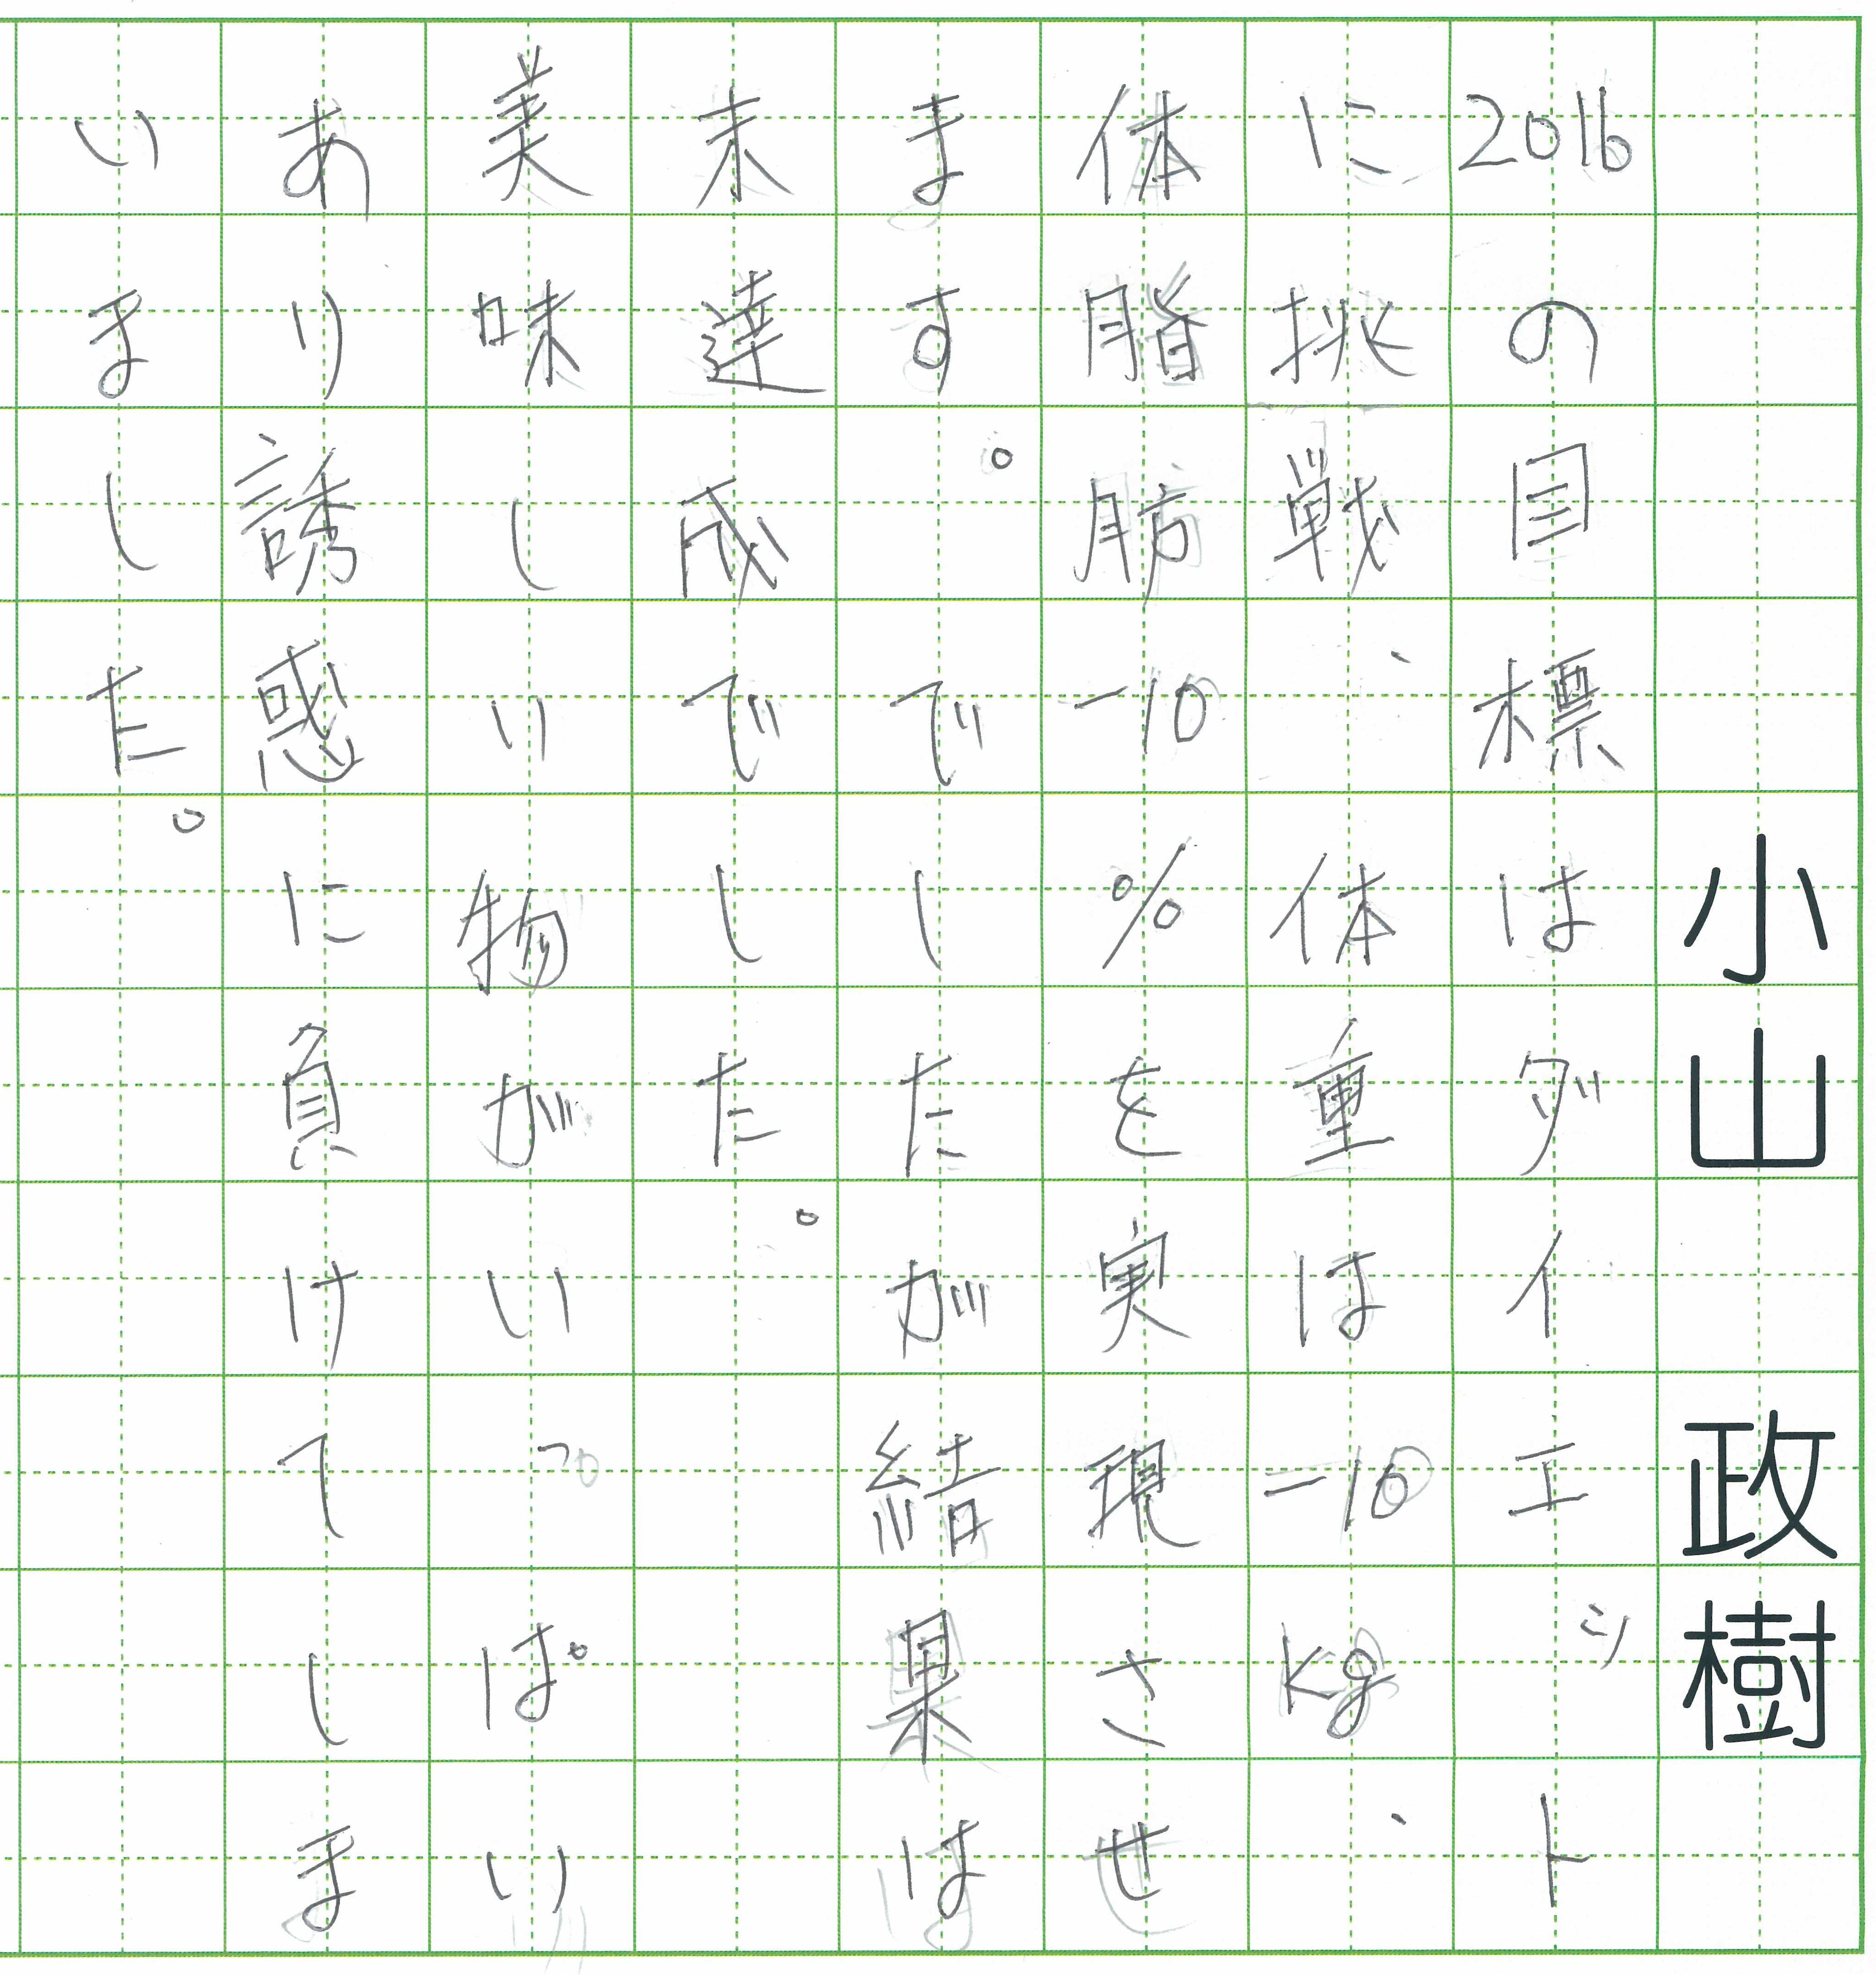 小山 政樹
2016の目標はダイエット
に挑戦、体重は-10kg、
体脂肪-10%を実現させ
ます。でしたが結果は
未達成でした。
美味しい物がいっぱい
あり誘惑に負けてしま
いました。